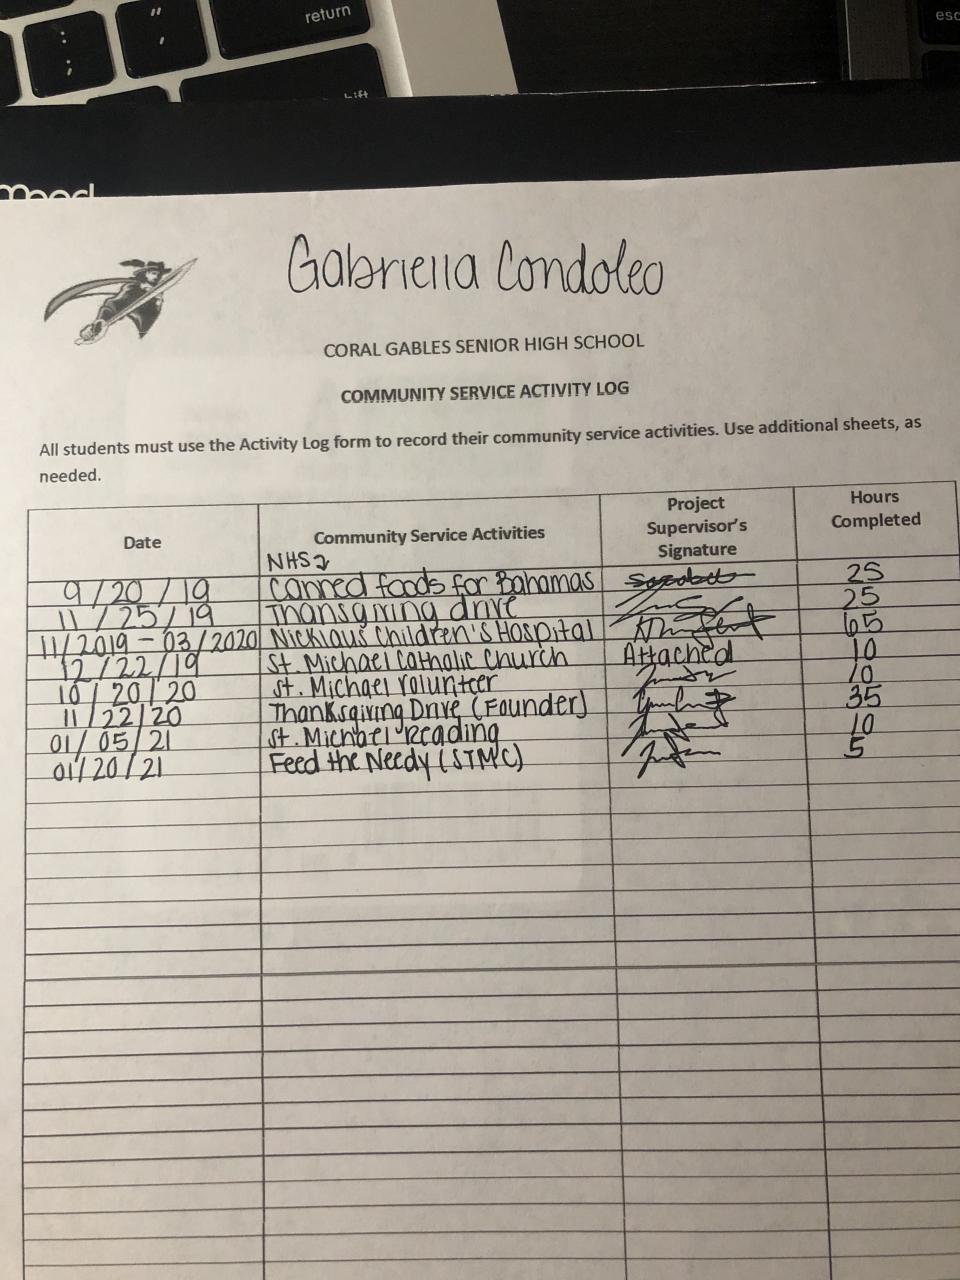 return
esc
" '
: ;
Gabriella Condoleo
CORAL GABLES SENIOR HIGH SCHOOL
COMMUNITY SERVICE ACTIVITY LOG
All students must use the Activity Log form to record their community service activities. Use additional sheets, as
needed.
Date Community Service Activities Project Supervisor's Signature Hours Completed
NHS
9/20/19 Canned foods for Bahamas 25
11/25/19 Thansgiving drive 25
11/2019 - 03/2020 Nicklaus Children's Hospital 65
12/22/19 St. Michael Catholic Church Attached 10
10/20/20 St. Michael Volunteer 10
11/22/20 Thanksgiving Drive (Founder) 35
01/05/21 St. Michael Reading 10
01/20/21 Feed the Needy (STMC) 5